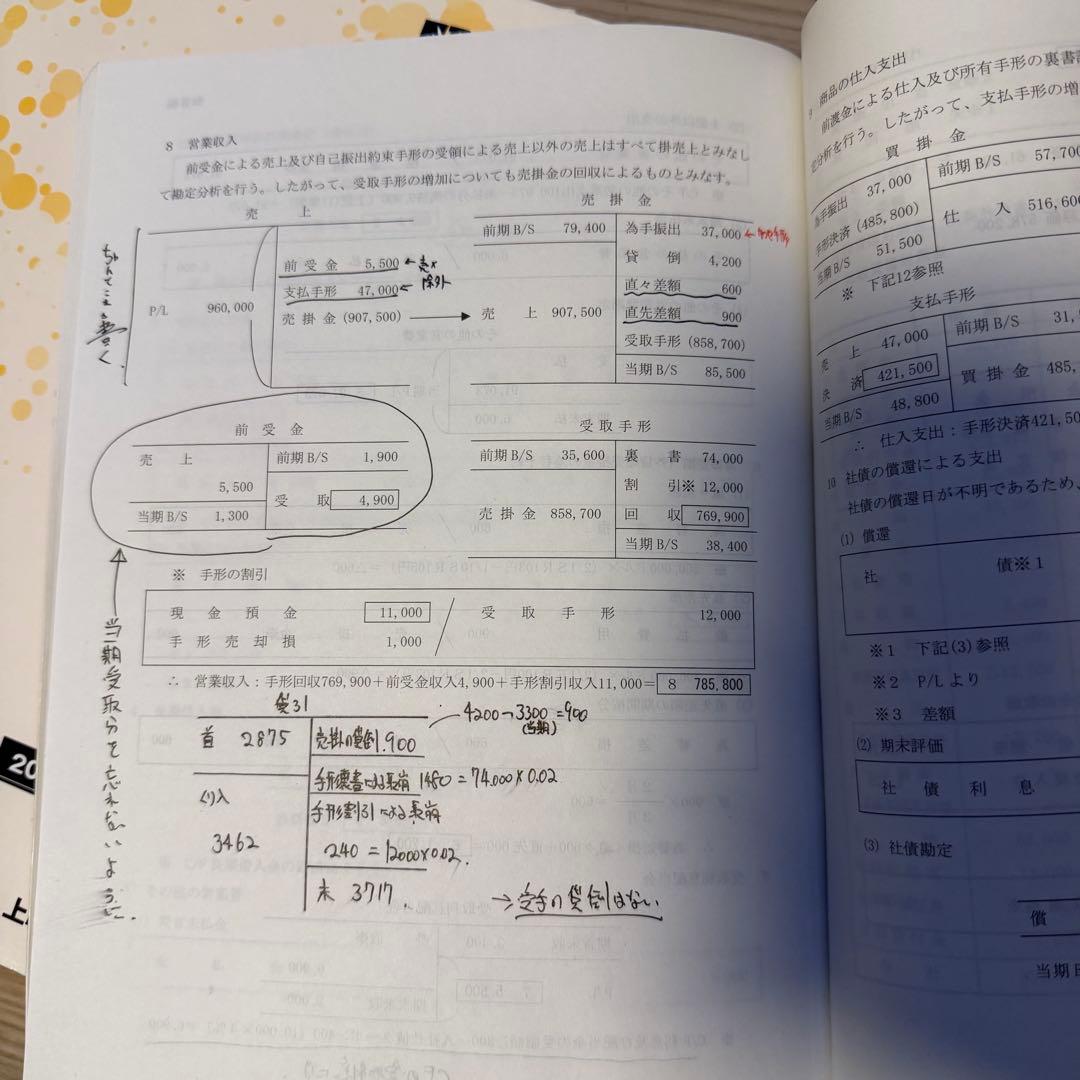 8 営業収入
前受金による売上及び自己振出約束手形の受領による売上以外の売上はすべて掛売上とみなし
て勘定分析を行う。したがって、受取手形の増加についても売掛金の回収によるものとみなす。
売 上
P/L 960,000
前受金 5,500 ←売×
支払手形 47,000 ← 除外
売掛金 (907,500)
売掛金
前期B/S 79,400
売 上 907,500
為手振出 37,000
貸 倒 4,200
直々差額 600
直先差額 900
受取手形 (858,700)
当期B/S 85,500
前受金
売 上
5,500
当期B/S 1,300
前期B/S 1,900
受 取 4,900
受取手形
前期B/S 35,600
売掛金 858,700
裏 書 74,000
割 引※ 12,000
回 収 769,900
当期B/S 38,400
※ 手形の割引
現金預金 11,000 / 受取手形 12,000
手形売却損 1,000
∴ 営業収入:手形回収769,900+前受金収入4,900+手形割引収入11,000= 8 785,800
貸引
首 2875
くり入
3462
売掛の貸倒 900
4200→3300=900
(当期)
手形裏書による長崩 1480 = 74.000×0.02
手形割引による長崩
240 = 12000×0.02
末 3717
→受手の貸倒はない
当期受取分を忘れないように
9 商品の仕入支出
前渡金による仕入及び所有手形の裏書
定分析を行う。したがって、支払手形の増
買掛金
為手振出 37,000
手形決済 (485,800)
当期B/S 51,500
前期B/S 57,700
仕 入 516,600
※ 下記12参照
支払手形
売 上 47,000
決 済 421,500
当期B/S 48,800
前期B/S 31,
買掛金 485,
∴ 仕入支出:手形決済421,50
10 社債の償還による支出
社債の償還日が不明であるため、
(1) 償還
社 債※1
※1 下記(3)参照
※2 P/Lより
※3 差額
(2) 期末評価
社債利息
(3) 社債勘定
償
当期B
20